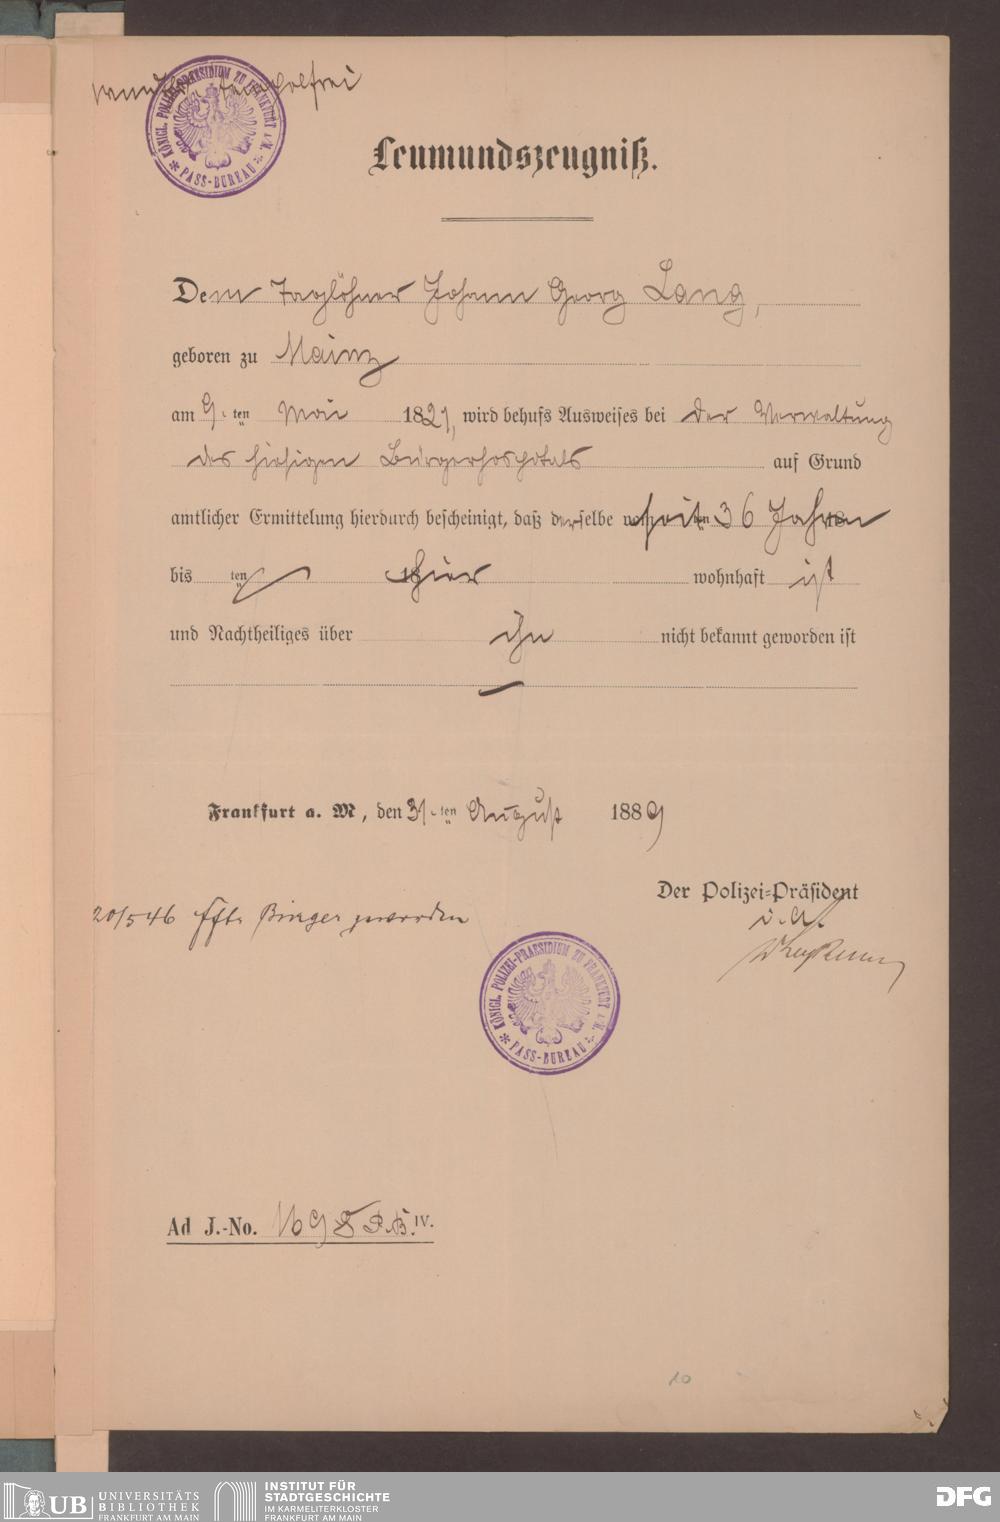 KÖNIGL. POLIZEI-PRAESIDIUM ZU FRANKFURT A. M.
* PASS-BUREAU *
Leumundszeugniß.
Dem Taglöhner Johann Georg Lang,
geboren zu Mainz
am 9. ten Mai 1821, wird behufs Ausweises bei der Verwaltung
des hiesigen Bürgerhospitals auf Grund
amtlicher Ermittelung hierdurch bescheinigt, daß derselbe seit 36 Jahren
bis ten 18 hier wohnhaft ist
und Nachtheiliges über ihn nicht bekannt geworden ist
Frankfurt a. M, den 31. ten August 1889
Der Polizei-Präsident
20/5 46 Bürger geworden
KÖNIGL. POLIZEI-PRAESIDIUM ZU FRANKFURT A. M.
* PASS-BUREAU *
Ad J.-No. IV.
10
UB UNIVERSITÄTS
BIBLIOTHEK
FRANKFURT AM MAIN
INSTITUT FÜR
STADTGESCHICHTE
IM KARMELITERKLOSTER
FRANKFURT AM MAIN
DFG